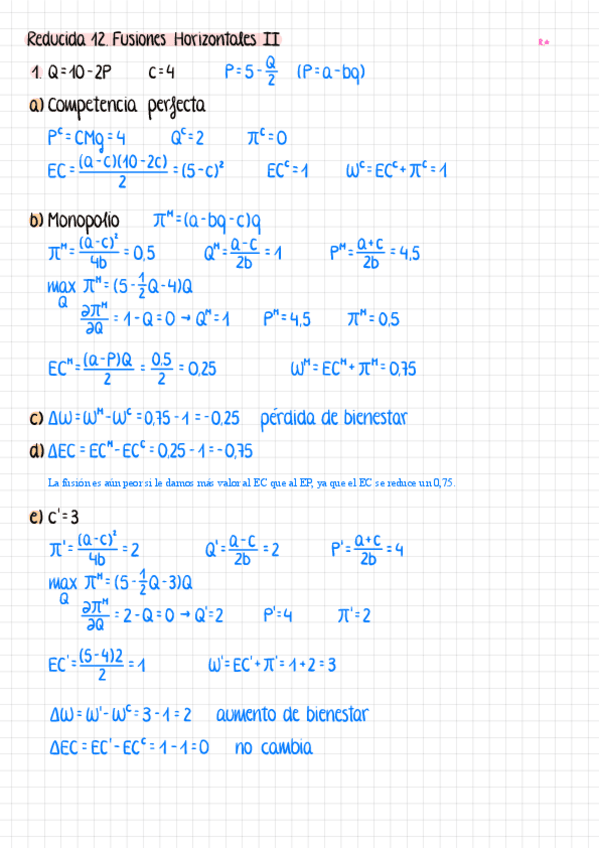 Reducida 12. Fusiones Horizontales II
R*
1. Q=10-2P c=4 P=5-Q/2 (P=a-bq)
a) Competencia perfecta
Pᶜ=CMg=4 Qᶜ=2 πᶜ=0
EC=(a-c)(10-2c)/2=(5-c)² ECᶜ=1 Wᶜ=ECᶜ+πᶜ=1
b) Monopolio πᴹ=(a-bq-c)q
πᴹ=(a-c)²/4b=0,5 Qᴹ=a-c/2b=1 Pᴹ=a+c/2b=4,5
max Q πᴹ=(5-1/2Q-4)Q
∂πᴹ/∂Q=1-Q=0→Qᴹ=1 Pᴹ=4,5 πᴹ=0,5
ECᴹ=(a-P)Q/2=0,5/2=0,25 Wᴹ=ECᴹ+πᴹ=0,75
c) ΔW=Wᴹ-Wᶜ=0,75-1=-0,25 pérdida de bienestar
d) ΔEC=ECᴹ-ECᶜ=0,25-1=-0,75
La fusión es aún peor si le damos más valor al EC que al EP, ya que el EC se reduce un 0,75.
e) c'=3
π'=(a-c)²/4b=2 Q'=a-c/2b=2 P'=a+c/2b=4
max Q πᴹ=(5-1/2Q-3)Q
∂πᴹ/∂Q=2-Q=0→Q'=2 P'=4 π'=2
EC'=(5-4)2/2=1 W'=EC'+π'=1+2=3
ΔW=W'-Wᶜ=3-1=2 aumento de bienestar
ΔEC=EC'-ECᶜ=1-1=0 no cambia